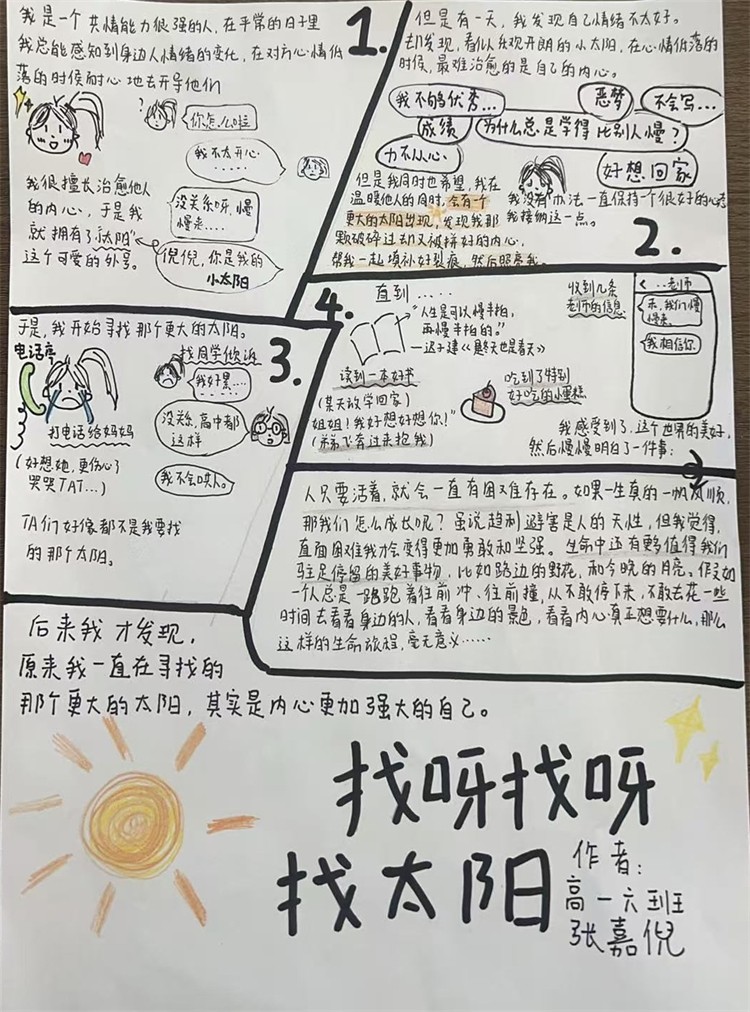 我是一个共情能力很强的人,在平常的日子里
我总能感知到身边人情绪的变化,在对方心情低
落的时候耐心地去开导他们
1.
你怎么啦
我不太开心……
我很擅长治愈他人
的内心,于是我
就拥有了“太阳”
这个可爱的外号。
没关系呀,慢
慢来…
倪倪,你是我的
小太阳
但是有一天,我发现自己情绪不太好。
却发现,看似乐观开朗的小太阳,在心情低落的
时候,最难治愈的是自己的内心。
我不够优秀…
恶梦
不会写…
成绩
为什么总是学得比别人慢?
力不从心
好想回家
但是我同时也希望,我在
温暖他人的同时,会有一个
更大的太阳出现,发现我那
颗破碎过却又被拼好的内心,
帮我一起填补好裂痕,然后照亮我。
我没有办法一直保持一个很好的心态
我接纳这一点。
2.
于是,我开始寻找那个更大的太阳。
3.
电话亭
打电话给妈妈
(好想她,更伤心了
哭哭TAT…)
找同学倾诉
我好累…
没关系,高中都
这样
我不会哄人。
TA们好像都不是我要找
的那个太阳。
4.
直到……
“人生是可以慢半拍,
再慢半拍的。”
—迟子建《最冬天也是春天》
读到一本好书
(某天放学回家)
姐姐!我好想好想你!”
(弟弟飞奔过来抱我)
吃到了特别
好吃的小蛋糕
收到几条
老师的信息
<..老师
来,我们慢
慢来。
我相信你
我感受到了,这个世界的美好,
然后慢慢明白了一件事:
人只要活着,就会一直有困难存在。如果一生真的一帆风顺,
那我们怎么成长呢?虽说趋利避害是人的天性,但我觉得,
直面困难我才会变得更加勇敢和坚强。生命中还有更多值得我们
驻足停留的美好事物,比如路边的野花,和今晚的月亮。倘若如
一个人总是一路跑着往前冲、往前撞,从不敢停下来,不敢去花一些
时间去看看身边的人,看看身边的景色,看看内心真正想要什么,那么
这样的生命旅程,毫无意义……
后来我才发现,
原来我一直在寻找的
那个更大的太阳,其实是内心更加强大的自己。
找呀找呀
找太阳
作者:
高一六班
张嘉倪